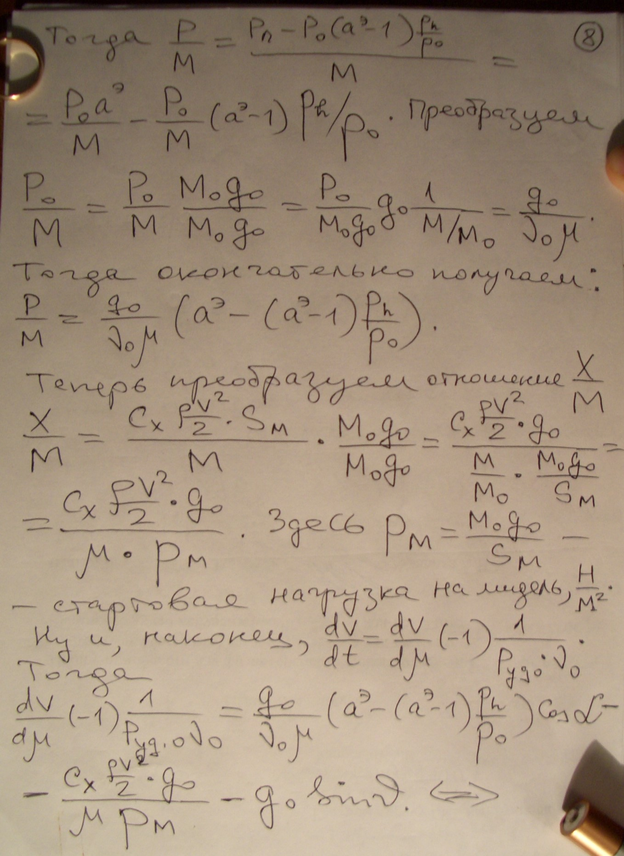 ⑧
Тогда P/M = (Pп − P₀(aᶟ−1) pₕ/p₀)/M =
= P₀aᶟ/M − P₀/M (aᶟ−1) pₕ/p₀. Преобразуем
P₀/M = P₀/M M₀g₀/M₀g₀ = P₀/M₀g₀ g₀ 1/(M/M₀) = g₀/(ν₀μ).
Тогда окончательно получаем:
P/M = g₀/(ν₀μ) (aᶟ − (aᶟ−1) pₕ/p₀).
Теперь преобразуем отношение X/M
X/M = (Cₓ ρV²/2 · Sм)/M · M₀g₀/M₀g₀ = (Cₓ ρV²/2 · g₀)/(M/M₀ · M₀g₀/Sм) =
= (Cₓ ρV²/2 · g₀)/(μ · pм). Здесь pм = M₀g₀/Sм −
− стартовая нагрузка на мидель, Н/м².
Ну и, наконец, dV/dt = dV/dμ (−1) 1/(Pуд₀ · ν₀).
Тогда
dV/dμ (−1) 1/(Pуд.0 ν₀) = g₀/(ν₀μ) (aᶟ − (aᶟ−1) pₕ/p₀) cosα −
− (Cₓ ρV²/2 · g₀)/(μ pм) − g₀ sinϑ. ⟺